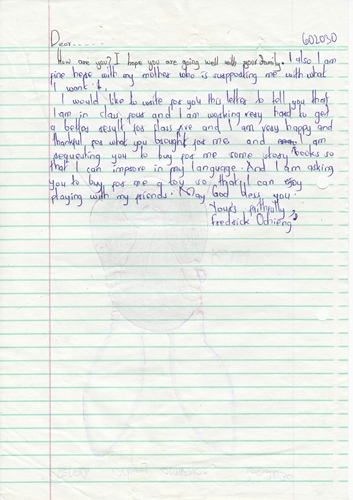 Dear......
602030
How are you? I hope you are going well with your family. I also I am
fine here with my mother who is supporting me with what
I want.
I would like to write for you this letter to tell you that
I am in class four and I am working very hard to get
a better result for class five and I am very happy and
thankful for what you brought for me. and I am
requesting you to buy for me some story books so
that I can improve in my language. And I am asking
you to buy for me a toy so that I can enjoy
playing with my friends. May God bless you.
Yours faithfully,
Fredrick Ochieng